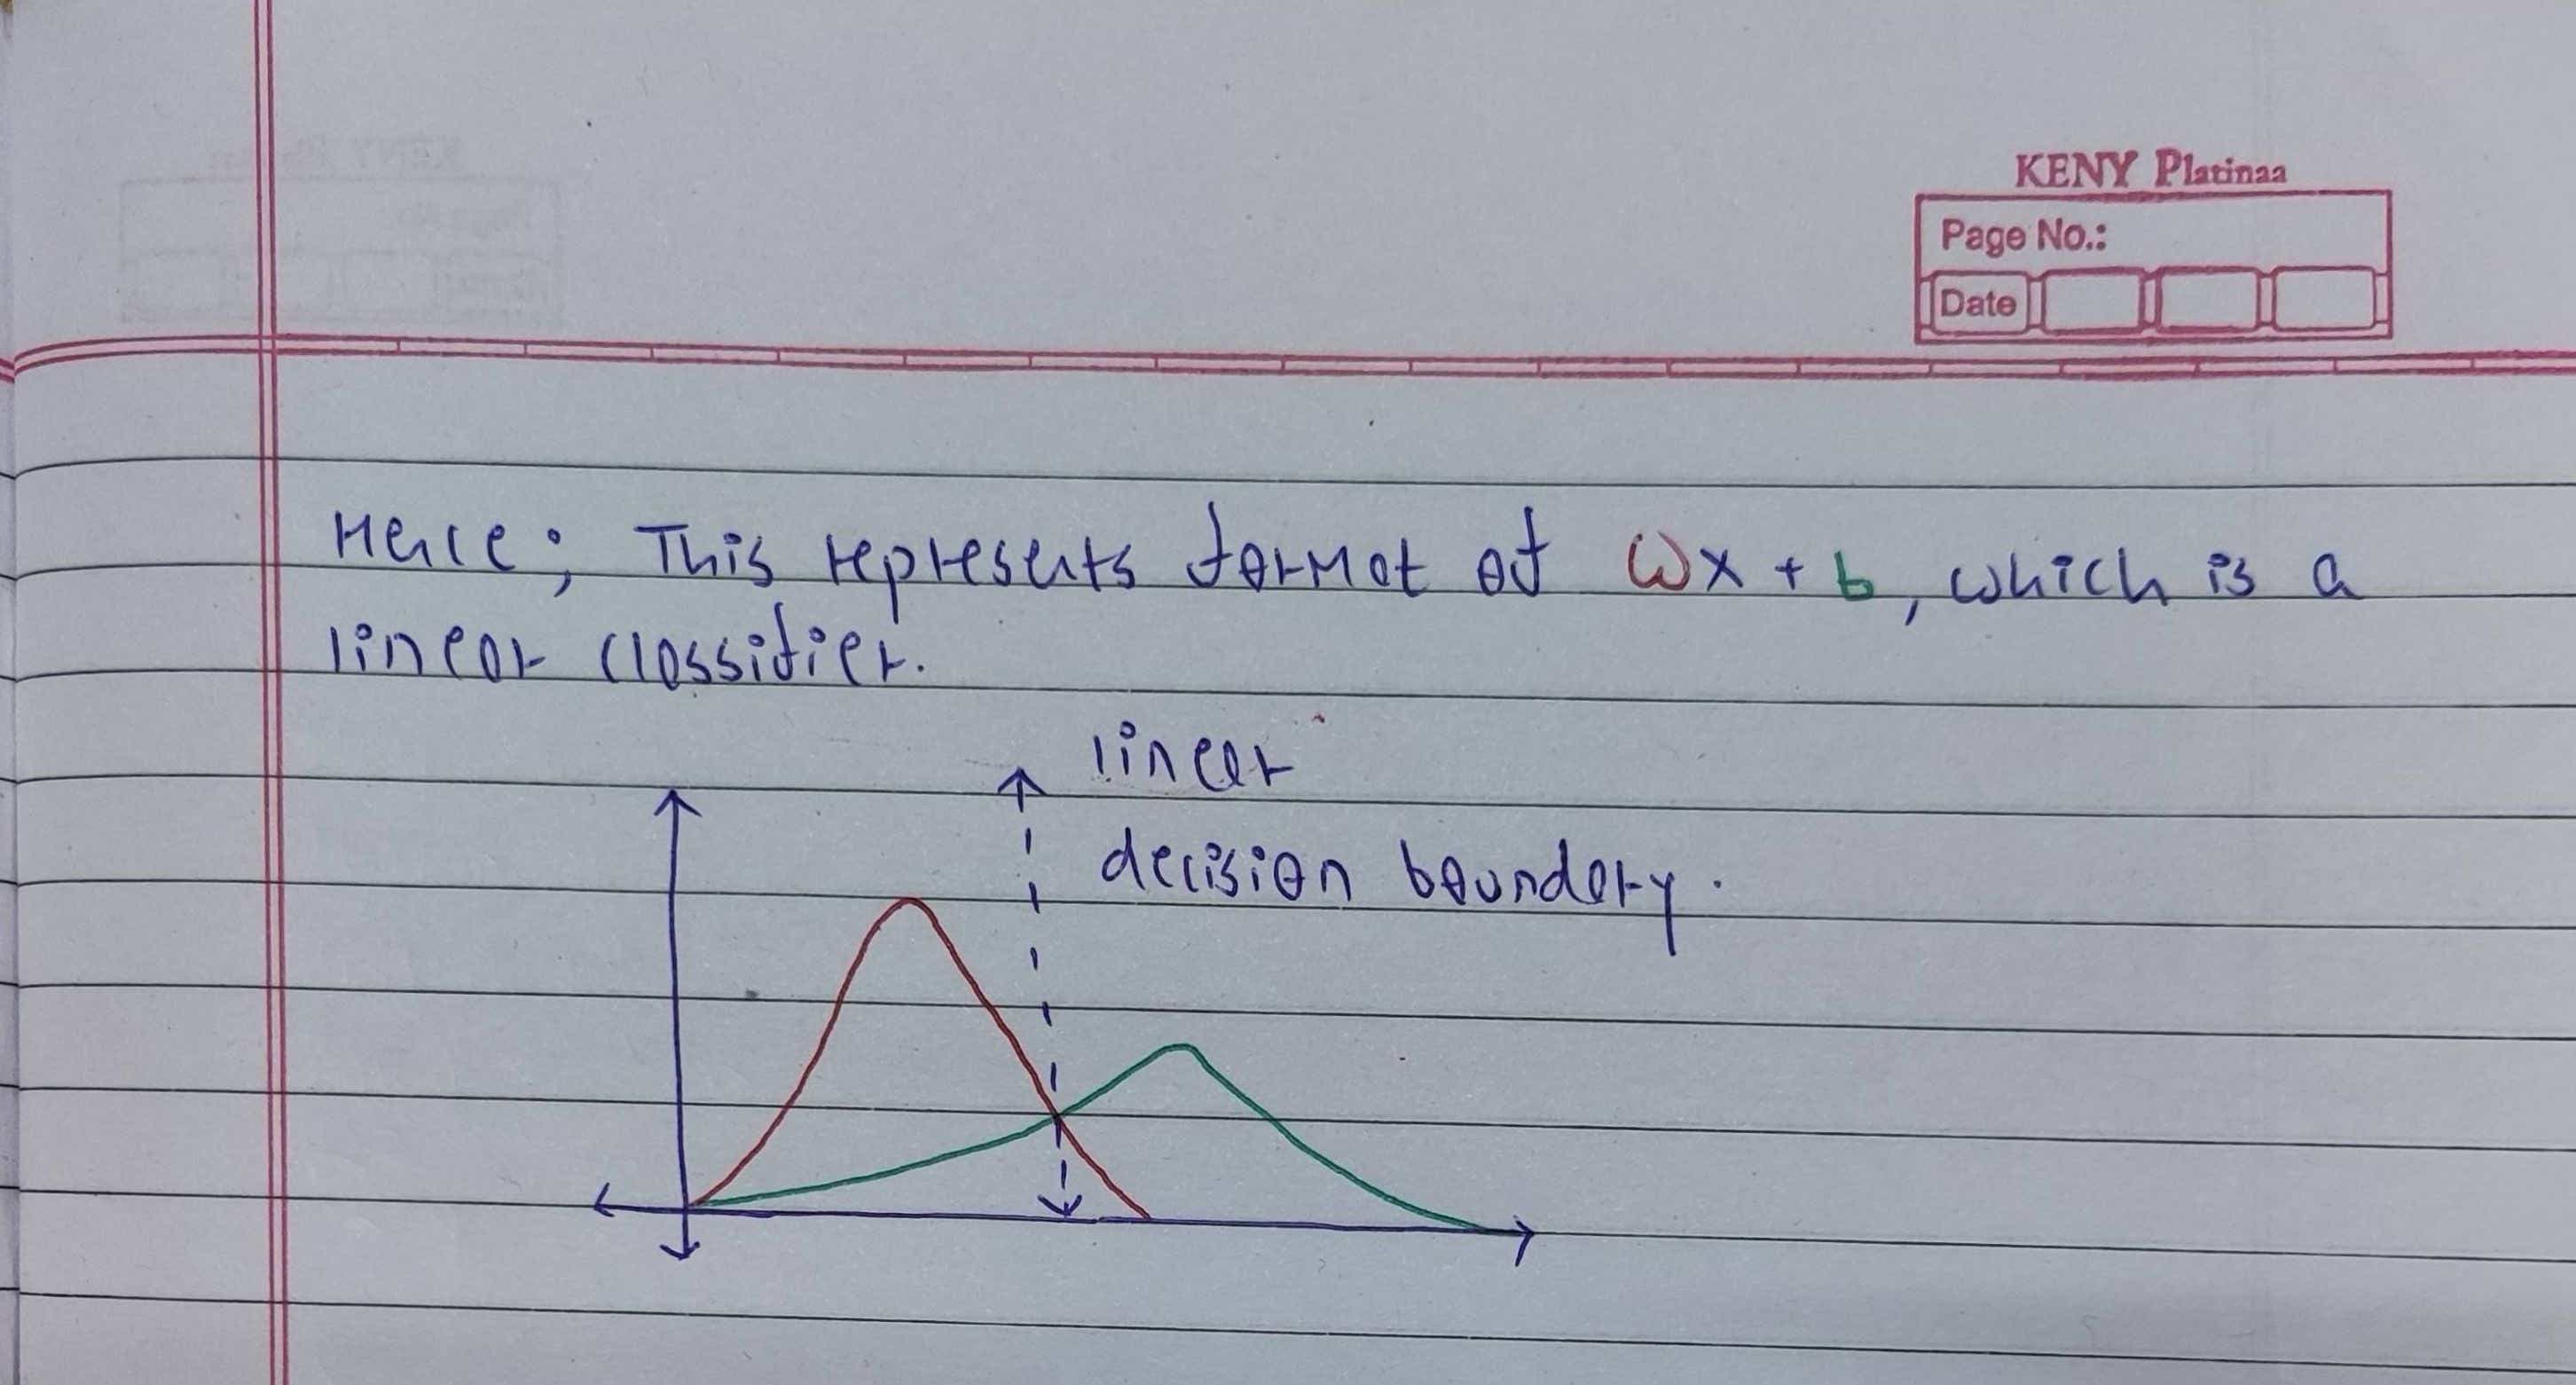 KENY Platinaa
Page No.:
Date
Hence; This represents format of ωx + b, which is a
linear classifier.
linear
decision boundary.